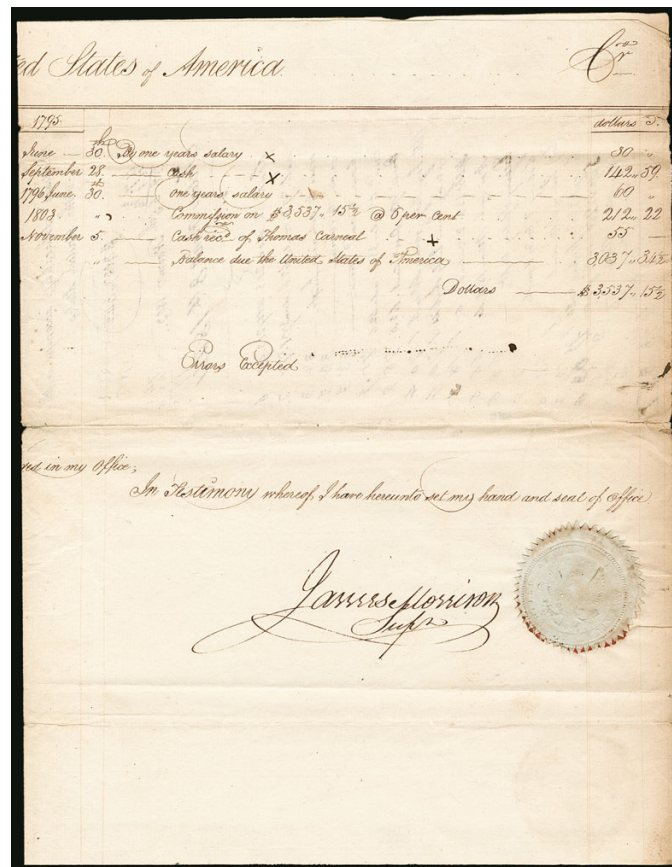 ed States of America. Cr
1795. dollars
June 30.th By one years salary . x 30 "
September 28. Cash x 142.. 59
1796 June 30.th one years salary 60 "
1803 " Commission on $3,537.. 15½ @ 6 per cent 212.. 22
November 5. Cash rec.d of Thomas Carneal + 55
" Balance due the United States of America 3,037.. 34½
Dollars $3,537.. 15½
Errors Excepted
red in my Office;
In Testimony whereof, I have hereunto set my hand and seal of Office
James Morrison
Supr